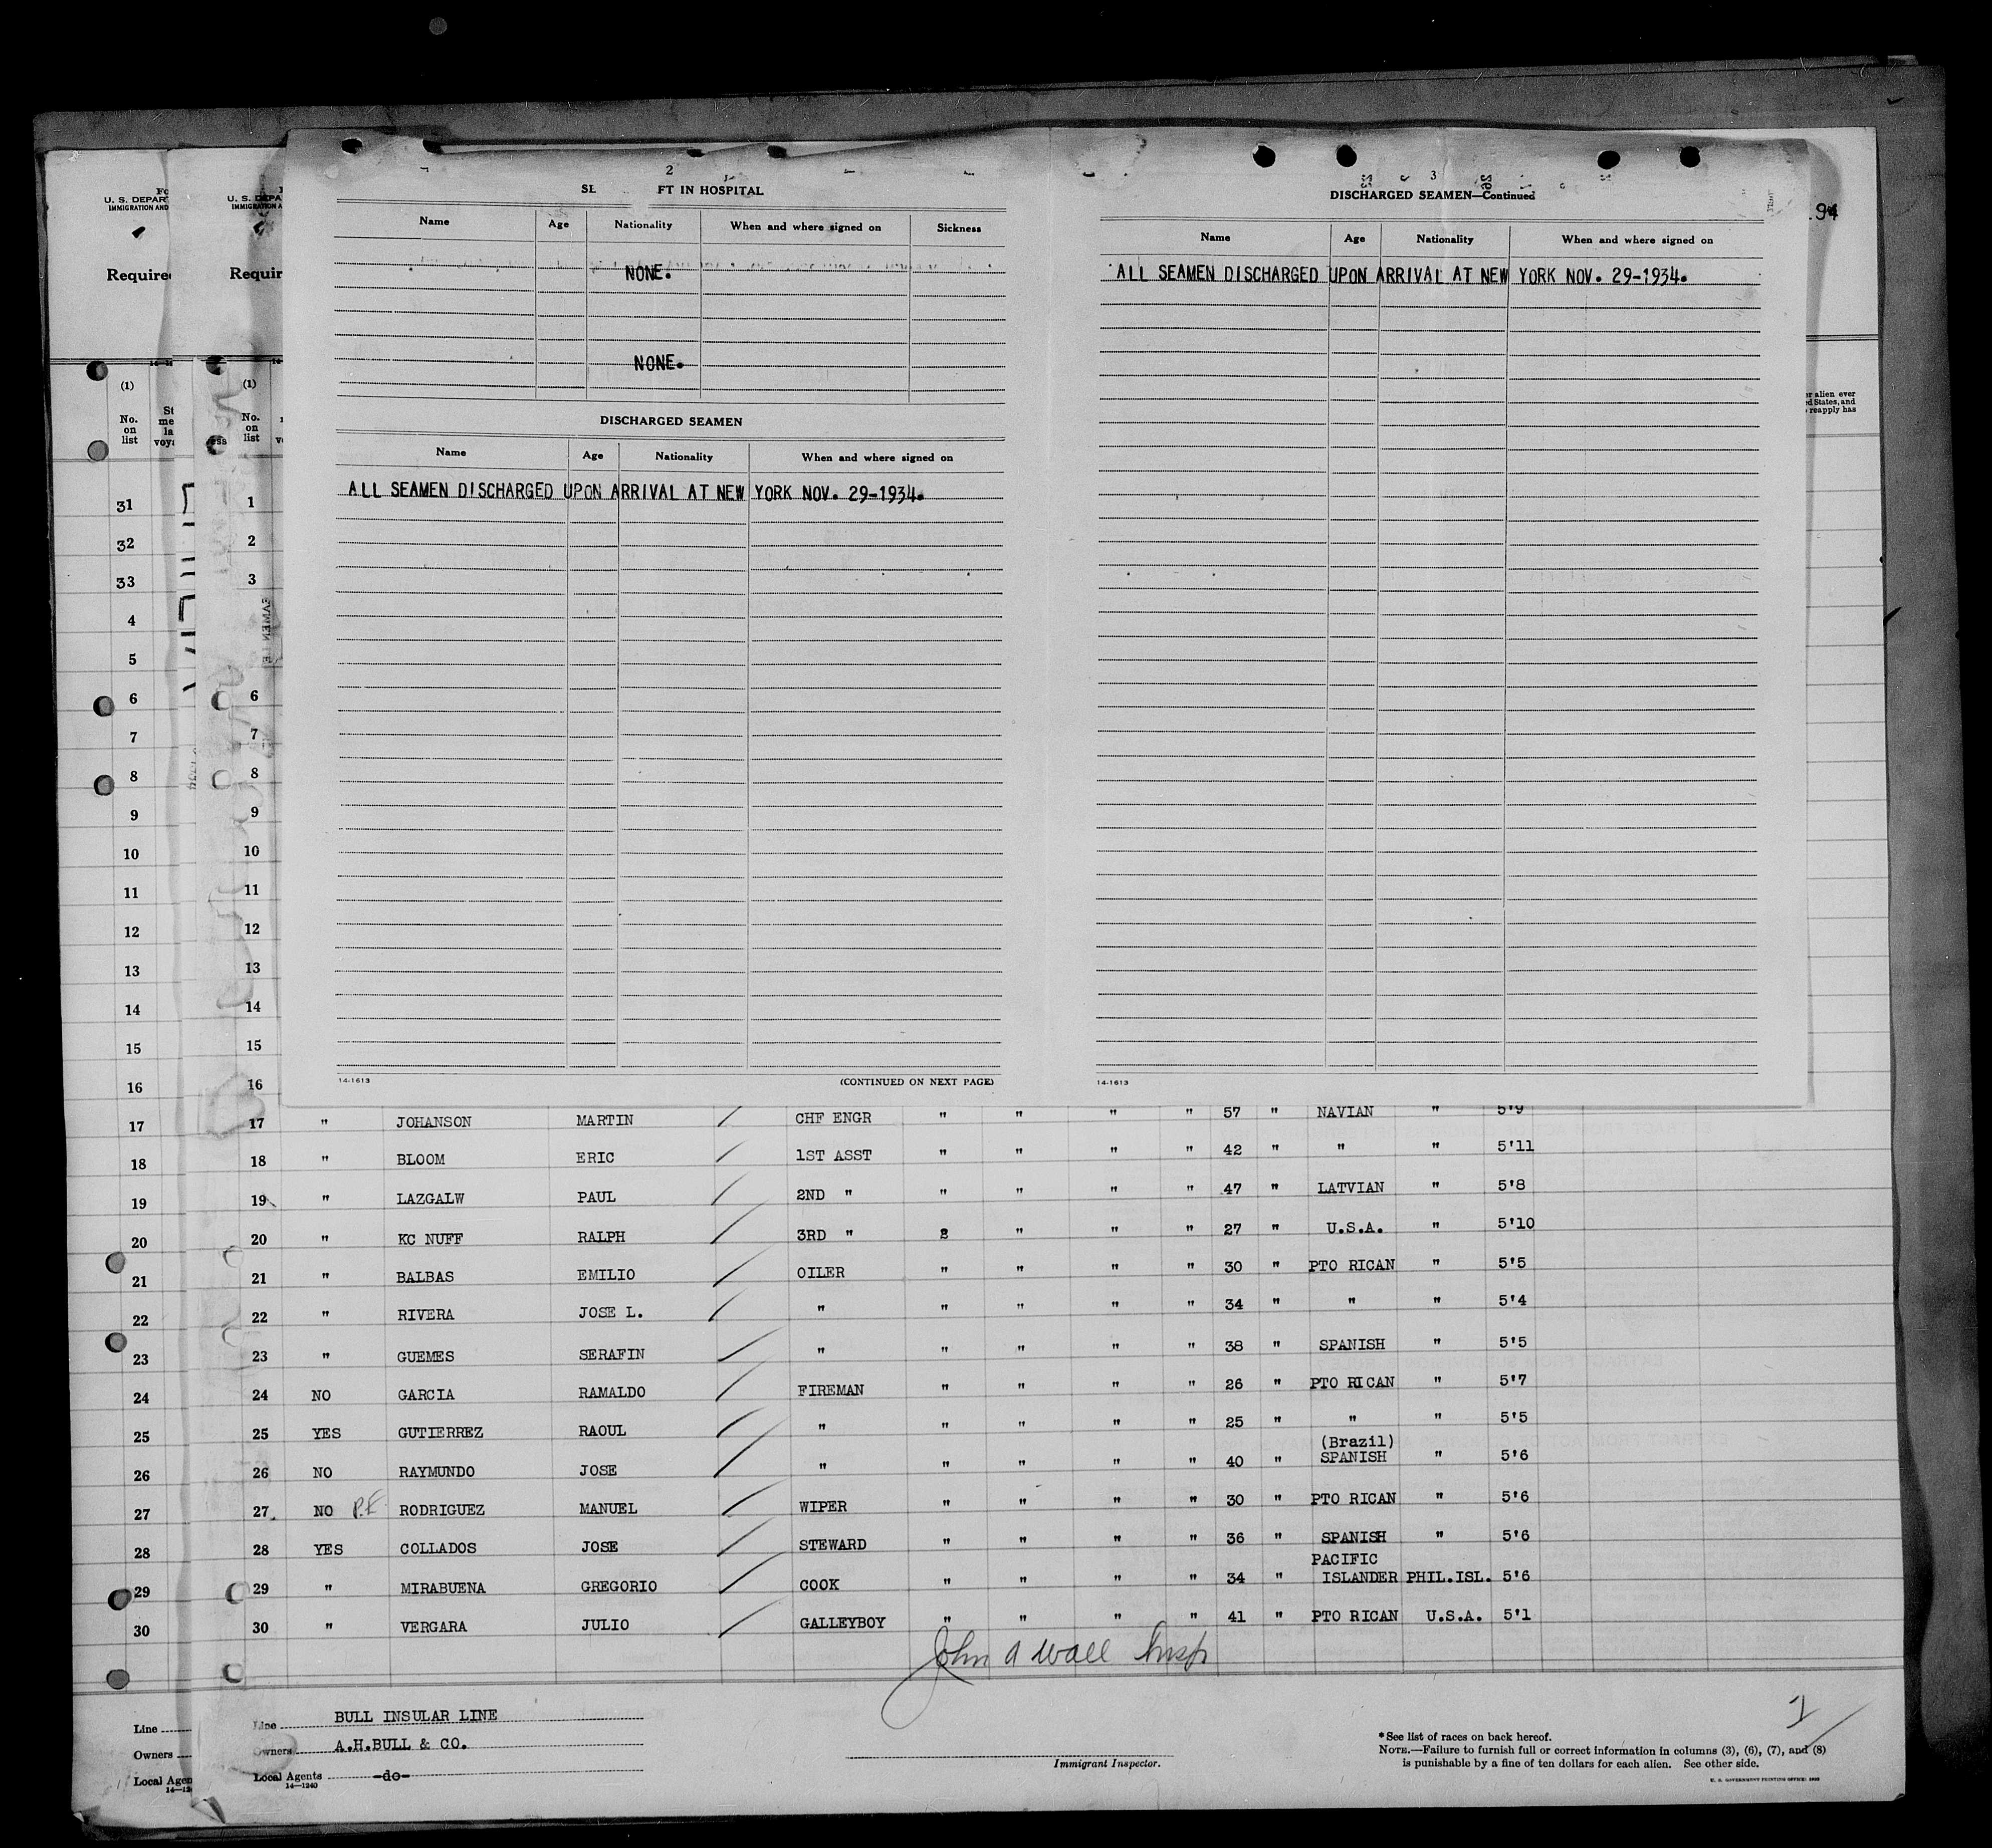 2
FT IN HOSPITAL
Name Age Nationality When and where signed on Sickness
NONE.
NONE.
DISCHARGED SEAMEN
Name Age Nationality When and where signed on
ALL SEAMEN DISCHARGED UPON ARRIVAL AT NEW YORK NOV. 29-1934.
14-1613 (CONTINUED ON NEXT PAGE)
3
DISCHARGED SEAMEN—Continued
Name Age Nationality When and where signed on
ALL SEAMEN DISCHARGED UPON ARRIVAL AT NEW YORK NOV. 29-1934.
14-1613
U. S. DEPAR
IMMIGRATION AND
Require
(1)
No.
on
list
31
32
33
4
5
6
7
8
9
10
11
12
13
14
15
16
17
18
19
20
21
22
23
24
25
26
27
28
29
30
Line
Owners
Local Agen
U. S. DEPA
Requir
(1)
No.
on
list
1
2
3
6
7
8
9
10
11
12
13
14
15
16
er alien ever
ed States, and
reapply has
17 " JOHANSON MARTIN / CHF ENGR " " " " 57 " NAVIAN " 5'9
18 " BLOOM ERIC / 1ST ASST " " " " 42 " " " 5'11
19 " LAZGALW PAUL / 2ND " " " " " 47 " LATVIAN " 5'8
20 " KC NUFF RALPH / 3RD " 2 " " " 27 " U.S.A. " 5'10
21 " BALBAS EMILIO / OILER " " " " 30 " PTO RICAN " 5'5
22 " RIVERA JOSE L. / " " " " " 34 " " " 5'4
23 " GUEMES SERAFIN / " " " " " 38 " SPANISH " 5'5
24 NO GARCIA RAMALDO / FIREMAN " " " " 26 " PTO RICAN " 5'7
25 YES GUTIERREZ RAOUL / " " " " " 25 " " " 5'5
(Brazil)
26 NO RAYMUNDO JOSE / " " " " " 40 " SPANISH " 5'6
27 NO P.E. RODRIGUEZ MANUEL / WIPER " " " " 30 " PTO RICAN " 5'6
28 YES COLLADOS JOSE / STEWARD " " " " 36 " SPANISH " 5'6
PACIFIC
29 " MIRABUENA GREGORIO / COOK " " " " 34 " ISLANDER PHIL.ISL. 5'6
30 " VERGARA JULIO / GALLEYBOY " " " " 41 " PTO RICAN U.S.A. 5'1
John A Wall Insp
Line BULL INSULAR LINE
Owners A.H.BULL & CO.
Local Agents -do-
14-1240
Immigrant Inspector.
1
*See list of races on back hereof.
NOTE.—Failure to furnish full or correct information in columns (3), (6), (7), and (8)
is punishable by a fine of ten dollars for each alien. See other side.